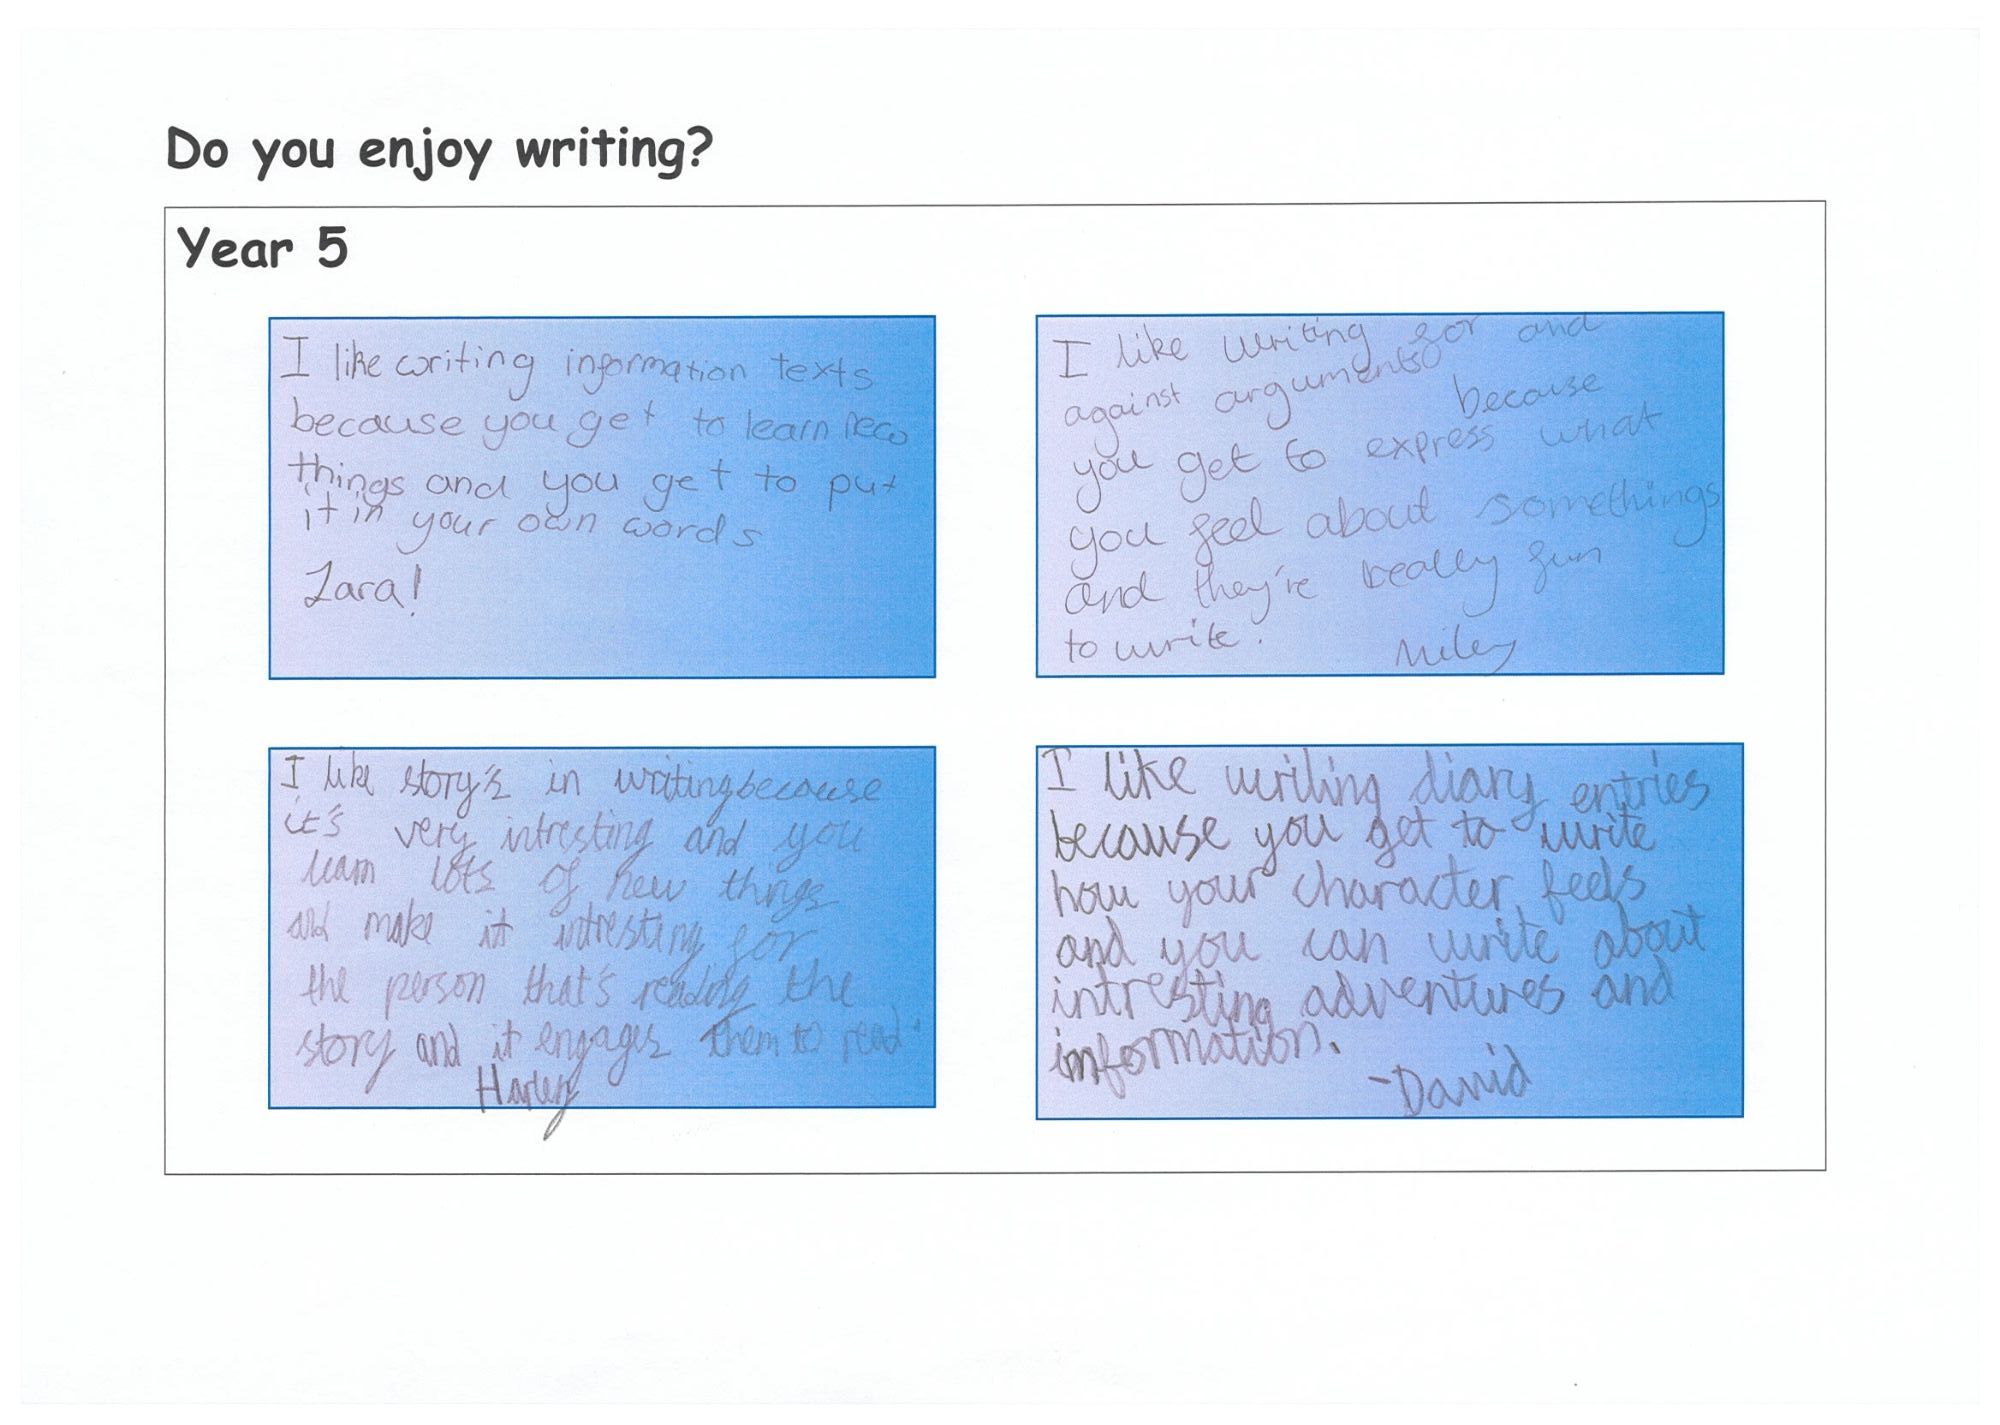 Do you enjoy writing?
Year 5
I like writing information texts
because you get to learn new
things and you get to put
it in your own words
Zara!
I like writing for and
against arguments because
you get to express what
you feel about somethings
and they're really fun
to write.
Miley
I like story's in writing because
it's very intresting and you
learn lots of new things
and make it intresting for
the person that's reading the
story and it engages them to read.
Harley
I like writing diary entries
because you get to write
how your character feels
and you can write about
intresting adventures and
information.
-David